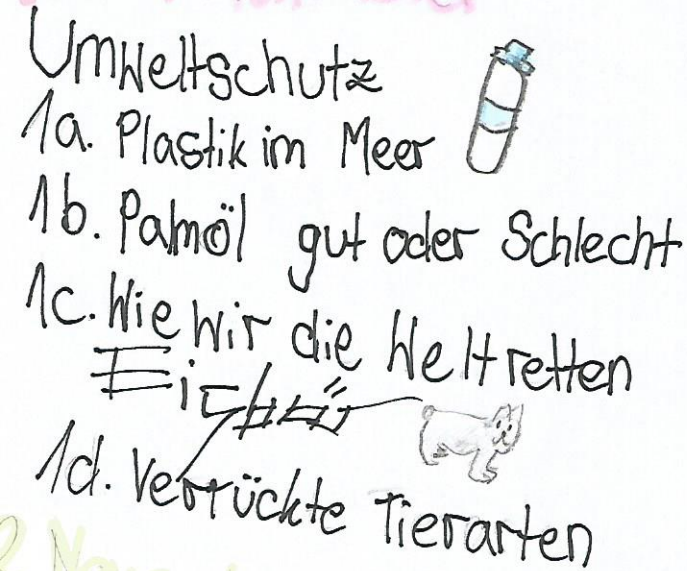 Umweltschutz
1a. Plastik im Meer
1b. Palmöl gut oder Schlecht
1c. Wie wir die Welt retten
1d. Verrückte Tierarten